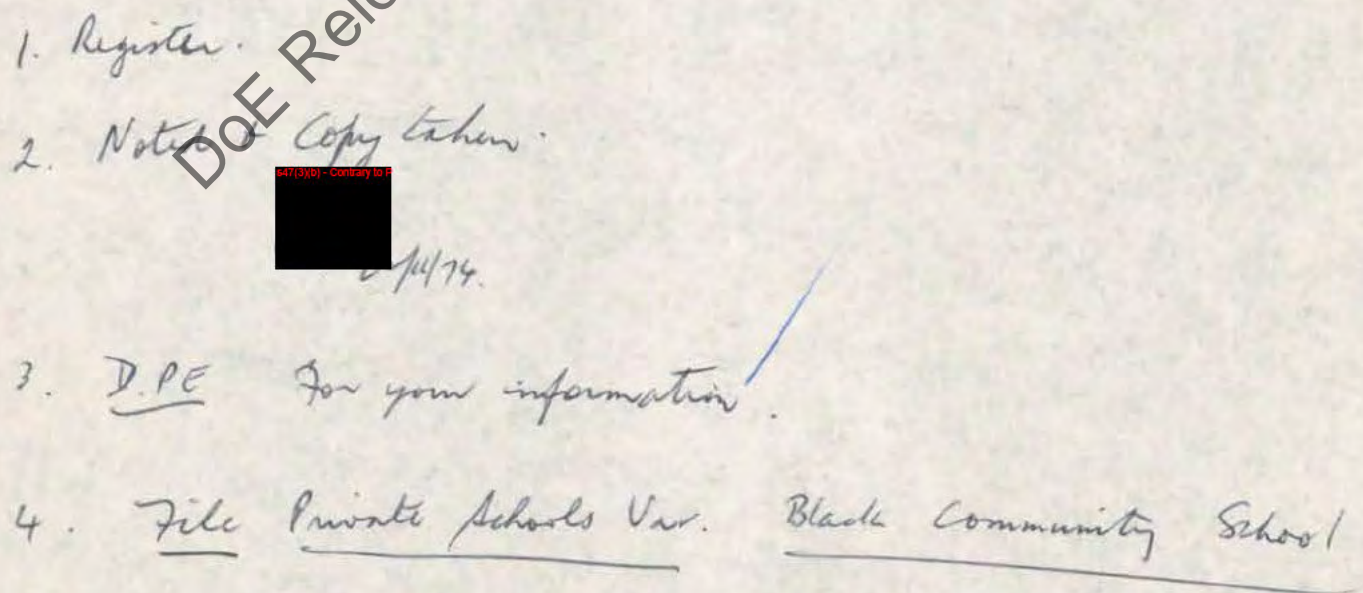 1. Register.
DoE
2. Noted & Copy taken.
s47(3)(b) - Contrary to P
/11/74.
3. D.PE For your information.
4. File Private Schools Var. Black Community School